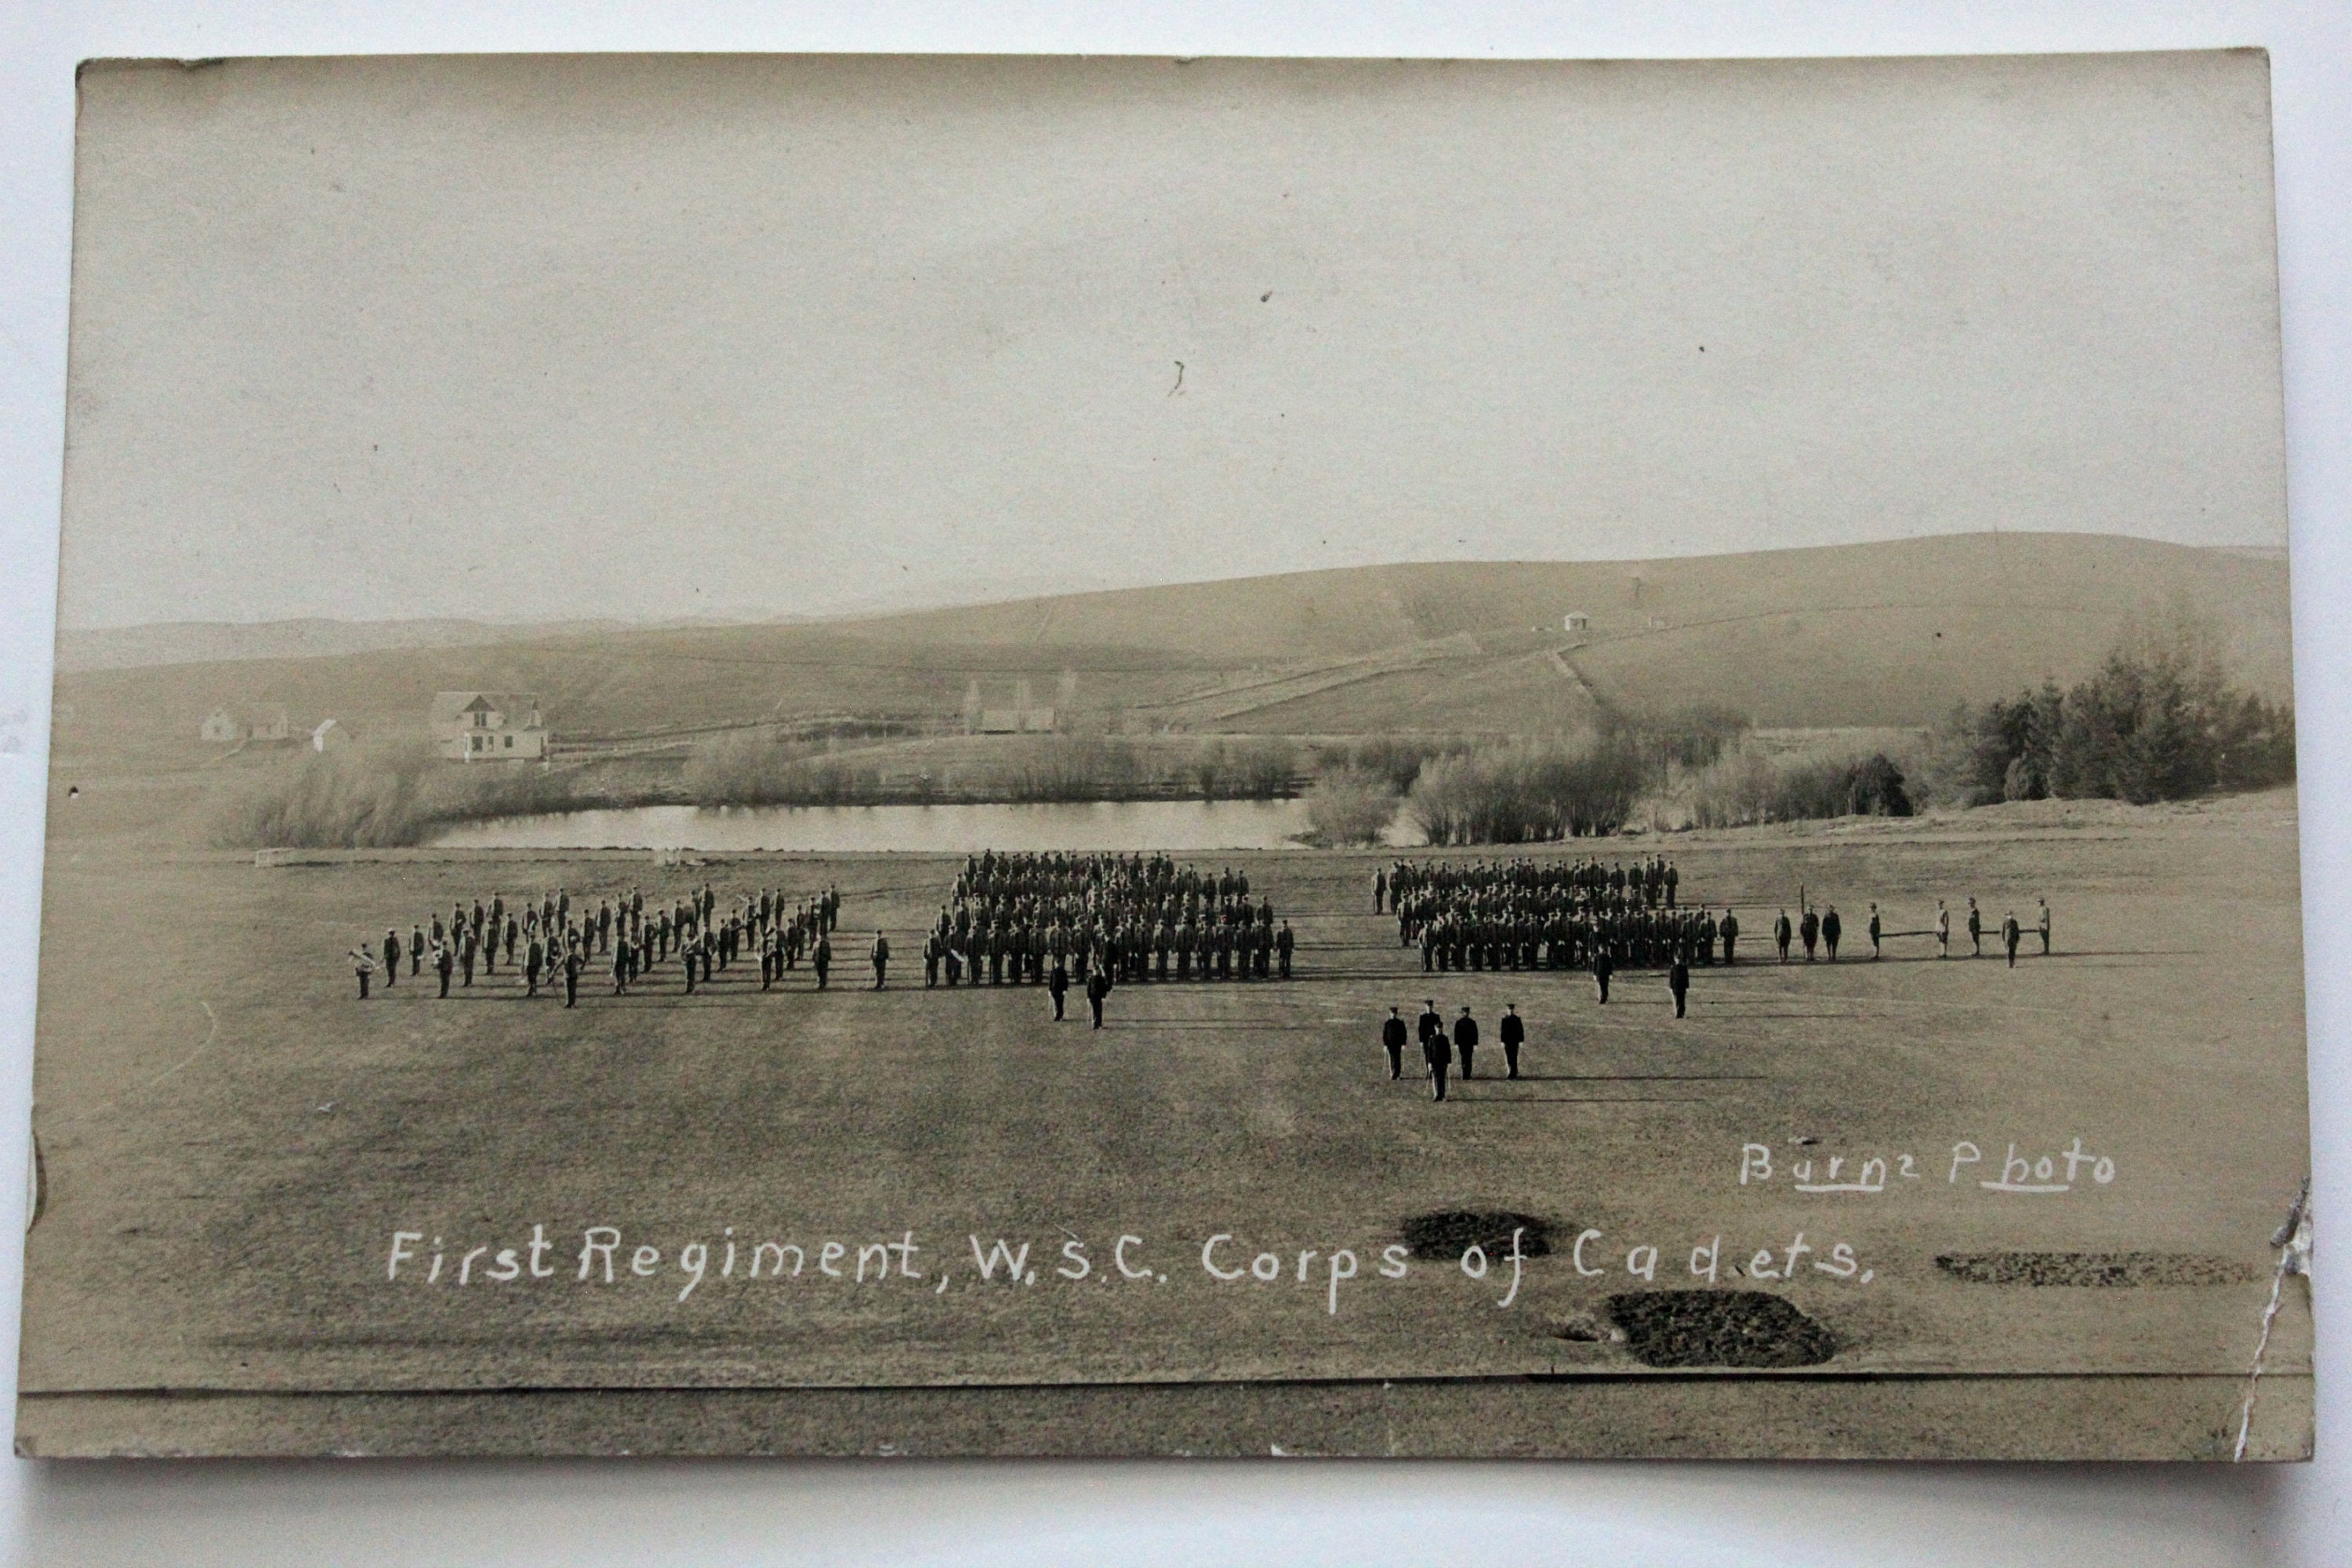 Burns Photo
First Regiment, W.S.C. Corps of Cadets.